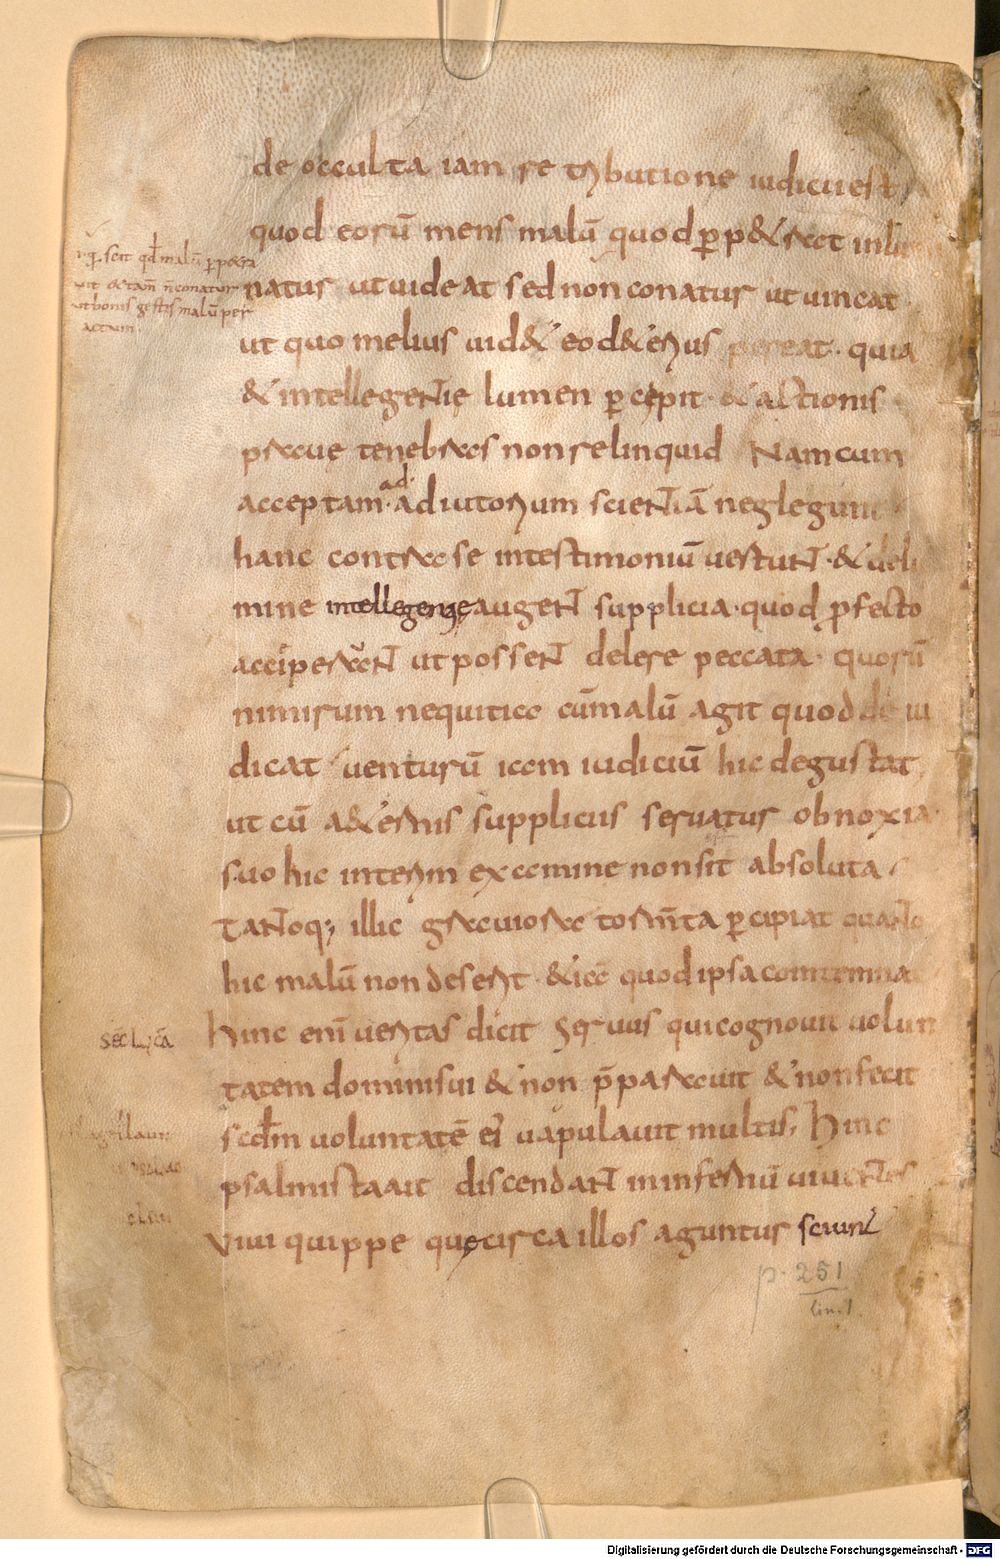 de occulta iam retributione iudicii est
quod eorū mens malū quod ꝑp&rat
natur ut uideat sed non conatur ut uincat
ut quo melius uid& eo d&erius pereat · quia
& intellegentię lumen ꝑcępit · & actionis
praue tenebras non relinquid Nam cum
acceptam · ad adiutorium scientiā neglegunt
hanc contra se in testimoniū uertunt · &
mine intellegentię augent supplicia · quod ꝓfecto
acciperant ut possent delere peccata · quorū
nimirum nequitia cū malū agit quod
dicat uenturū iam iudiciū hic degustat
ut cū a&ernis suppliciis seruatur obnoxia ·
suo hic interim examine non sit absoluta
Tantoq; illic grauiora tormta ꝑcipiat quanto
hic malū non deserit · &iā quod ipsa
hinc enī ueritas dicit Seruus qui cognouit uolun
tatem domini sui & non p̄parauit & non fecit
scdm uoluntatē ei uapulauit multis, Hinc
psalmista ait discendant in infernū uiuentes
Viui quippe quę circa illos aguntur sciunt
scit qd malū ꝑp&ra
& tam n̄ conatur
ut bonis gestis malū per
actum
sec lucā
p. 251
lin. 1
Digitalisierung gefördert durch die Deutsche Forschungsgemeinschaft - DFG